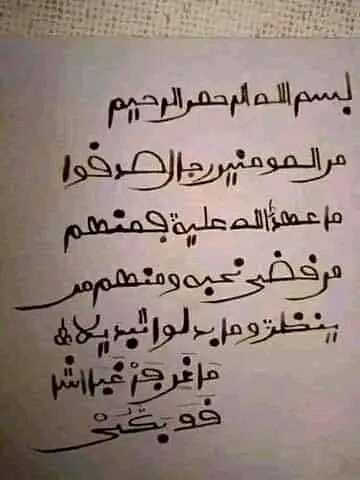 بسم الله الرحمن الرحيم
من المومنين رجال صدقوا
ما عهدوا الله علية فمنهم
من قضى نحبه ومنهم من
ينظر وما بدلوا تبديلا